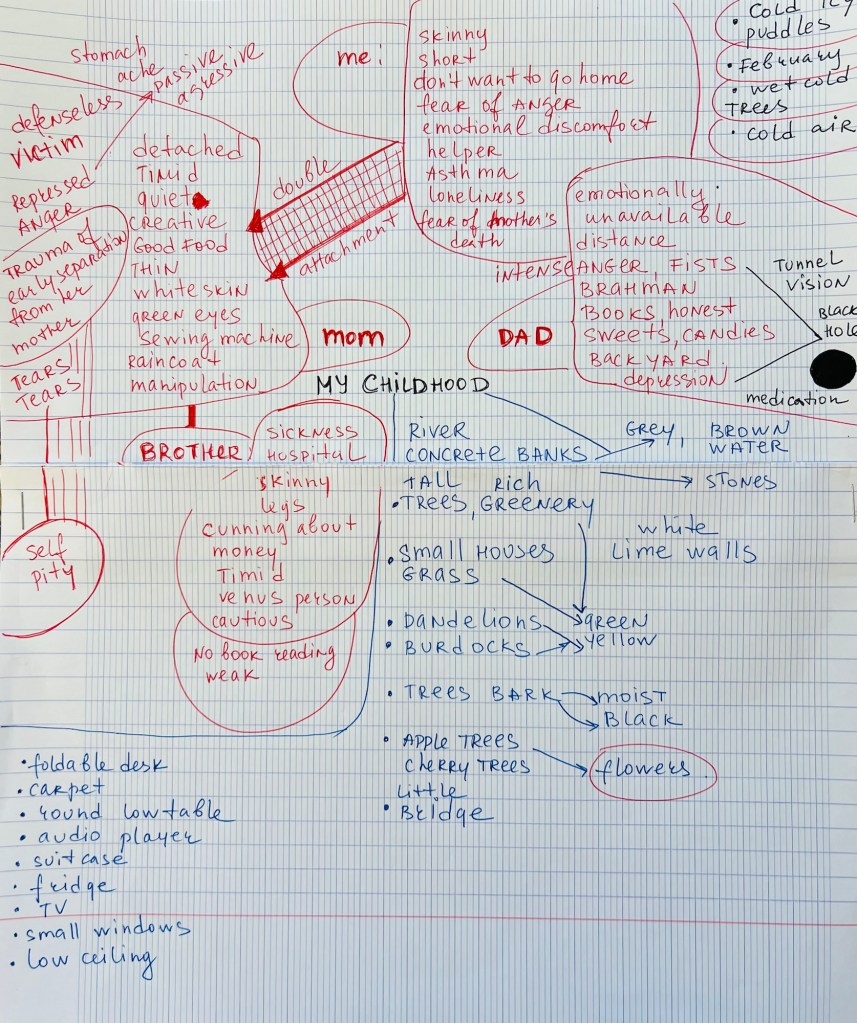 stomach
ache
passive
agressive
defenseless
victim
Repressed
ANGER
Trauma of
early separation
from her
mother
TEARS
TEARS
self
pity
detached
Timid
quiet
CREATIVE
Good Food
THIN
white skin
green eyes
sewing machine
Raincoat
manipulation
mom
double
attachment
me:
skinny
short
don't want to go home
fear of ANGER
emotional discomfort
helper
Asthma
loneliness
fear of mother's
death
• COLD ICY
puddles
• February
• wet cold
TREES
• cold air
DAD
emotionally
unavailable
distance
intense ANGER, FISTS
BRAHMAN
BOOKS, honest
sweets, CANDIES
BACK YARD
depression
Tunnel
VISION
BLACK
HOLE
medication
MY CHILDHOOD
BROTHER
SICKNESS
HOSPITAL
skinny
legs
cunning about
money
Timid
venus person
cautious
NO book reading
weak
RIVER
CONCRETE BANKS
GREY, BROWN
WATER
STONES
TALL RICH
• TREES, GREENERY
white
Lime walls
• Small HOUSES
GRASS
• DANDELIONS
green
• BURDOCKS
yellow
• TREES BARK
moist
BLACK
• APPLE TREES
CHERRY TREES
flowers
Little
• BRIDGE
• foldable desk
• carpet
• round low table
• audio player
• suitcase
• fridge
• TV
• small windows
• low ceiling